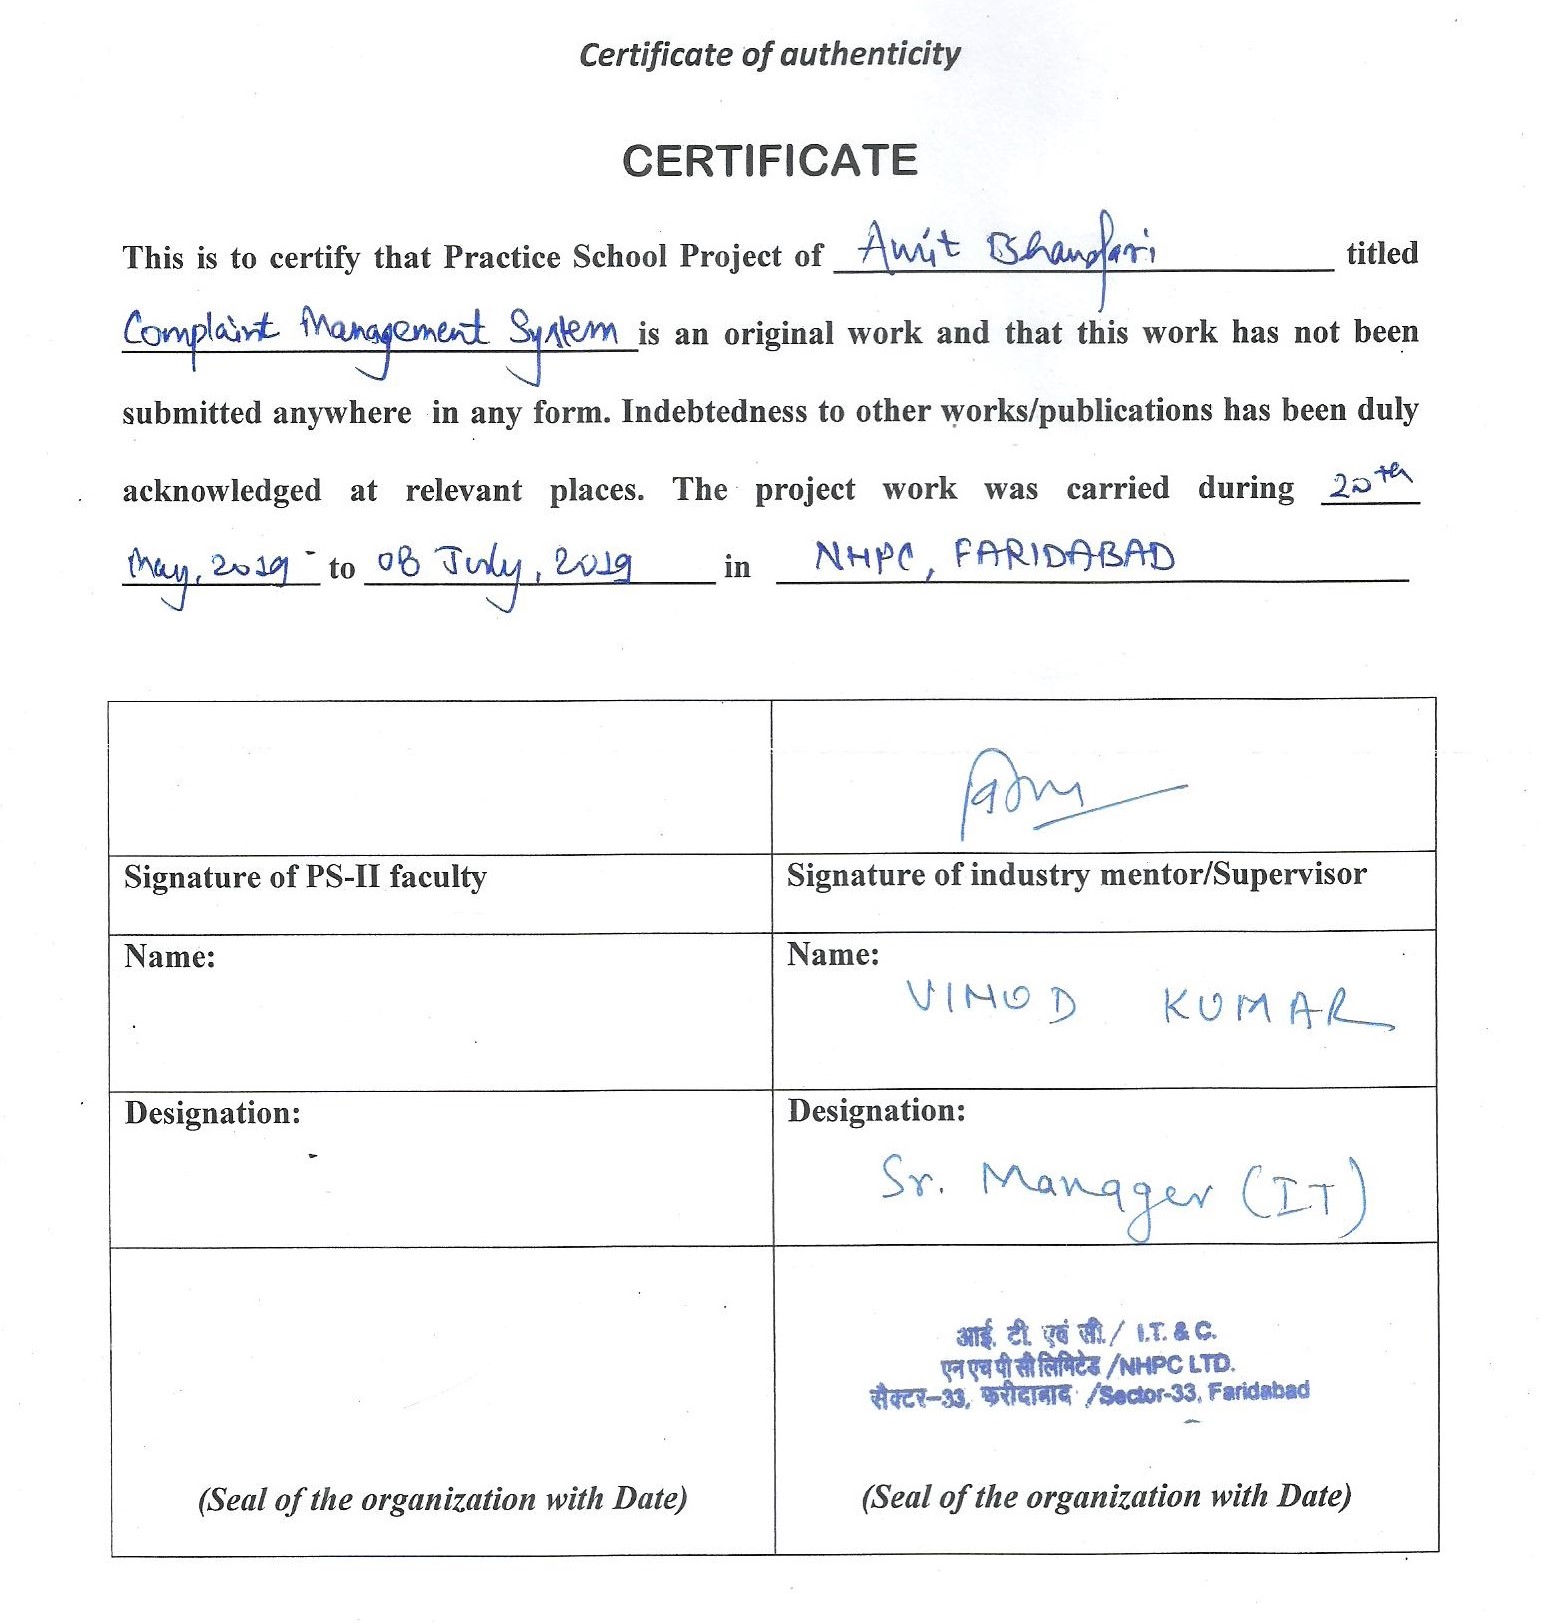 Certificate of authenticity
CERTIFICATE
This is to certify that Practice School Project of Amit Bhandari titled
Complaint Management System is an original work and that this work has not been
submitted anywhere in any form. Indebtedness to other works/publications has been duly
acknowledged at relevant places. The project work was carried during 20th
May, 2019 to 08 July, 2019 in NHPC, FARIDABAD
Signature of PS-II faculty
Signature of industry mentor/Supervisor
Name:
Name:
VINOD KUMAR
Designation:
Designation:
Sr. Manager (IT)
आई. टी. एवं सी. / I.T. & C.
एन एच पी सी लिमिटेड / NHPC LTD.
सैक्टर-33, फरीदाबाद / Sector-33, Faridabad
(Seal of the organization with Date)
(Seal of the organization with Date)